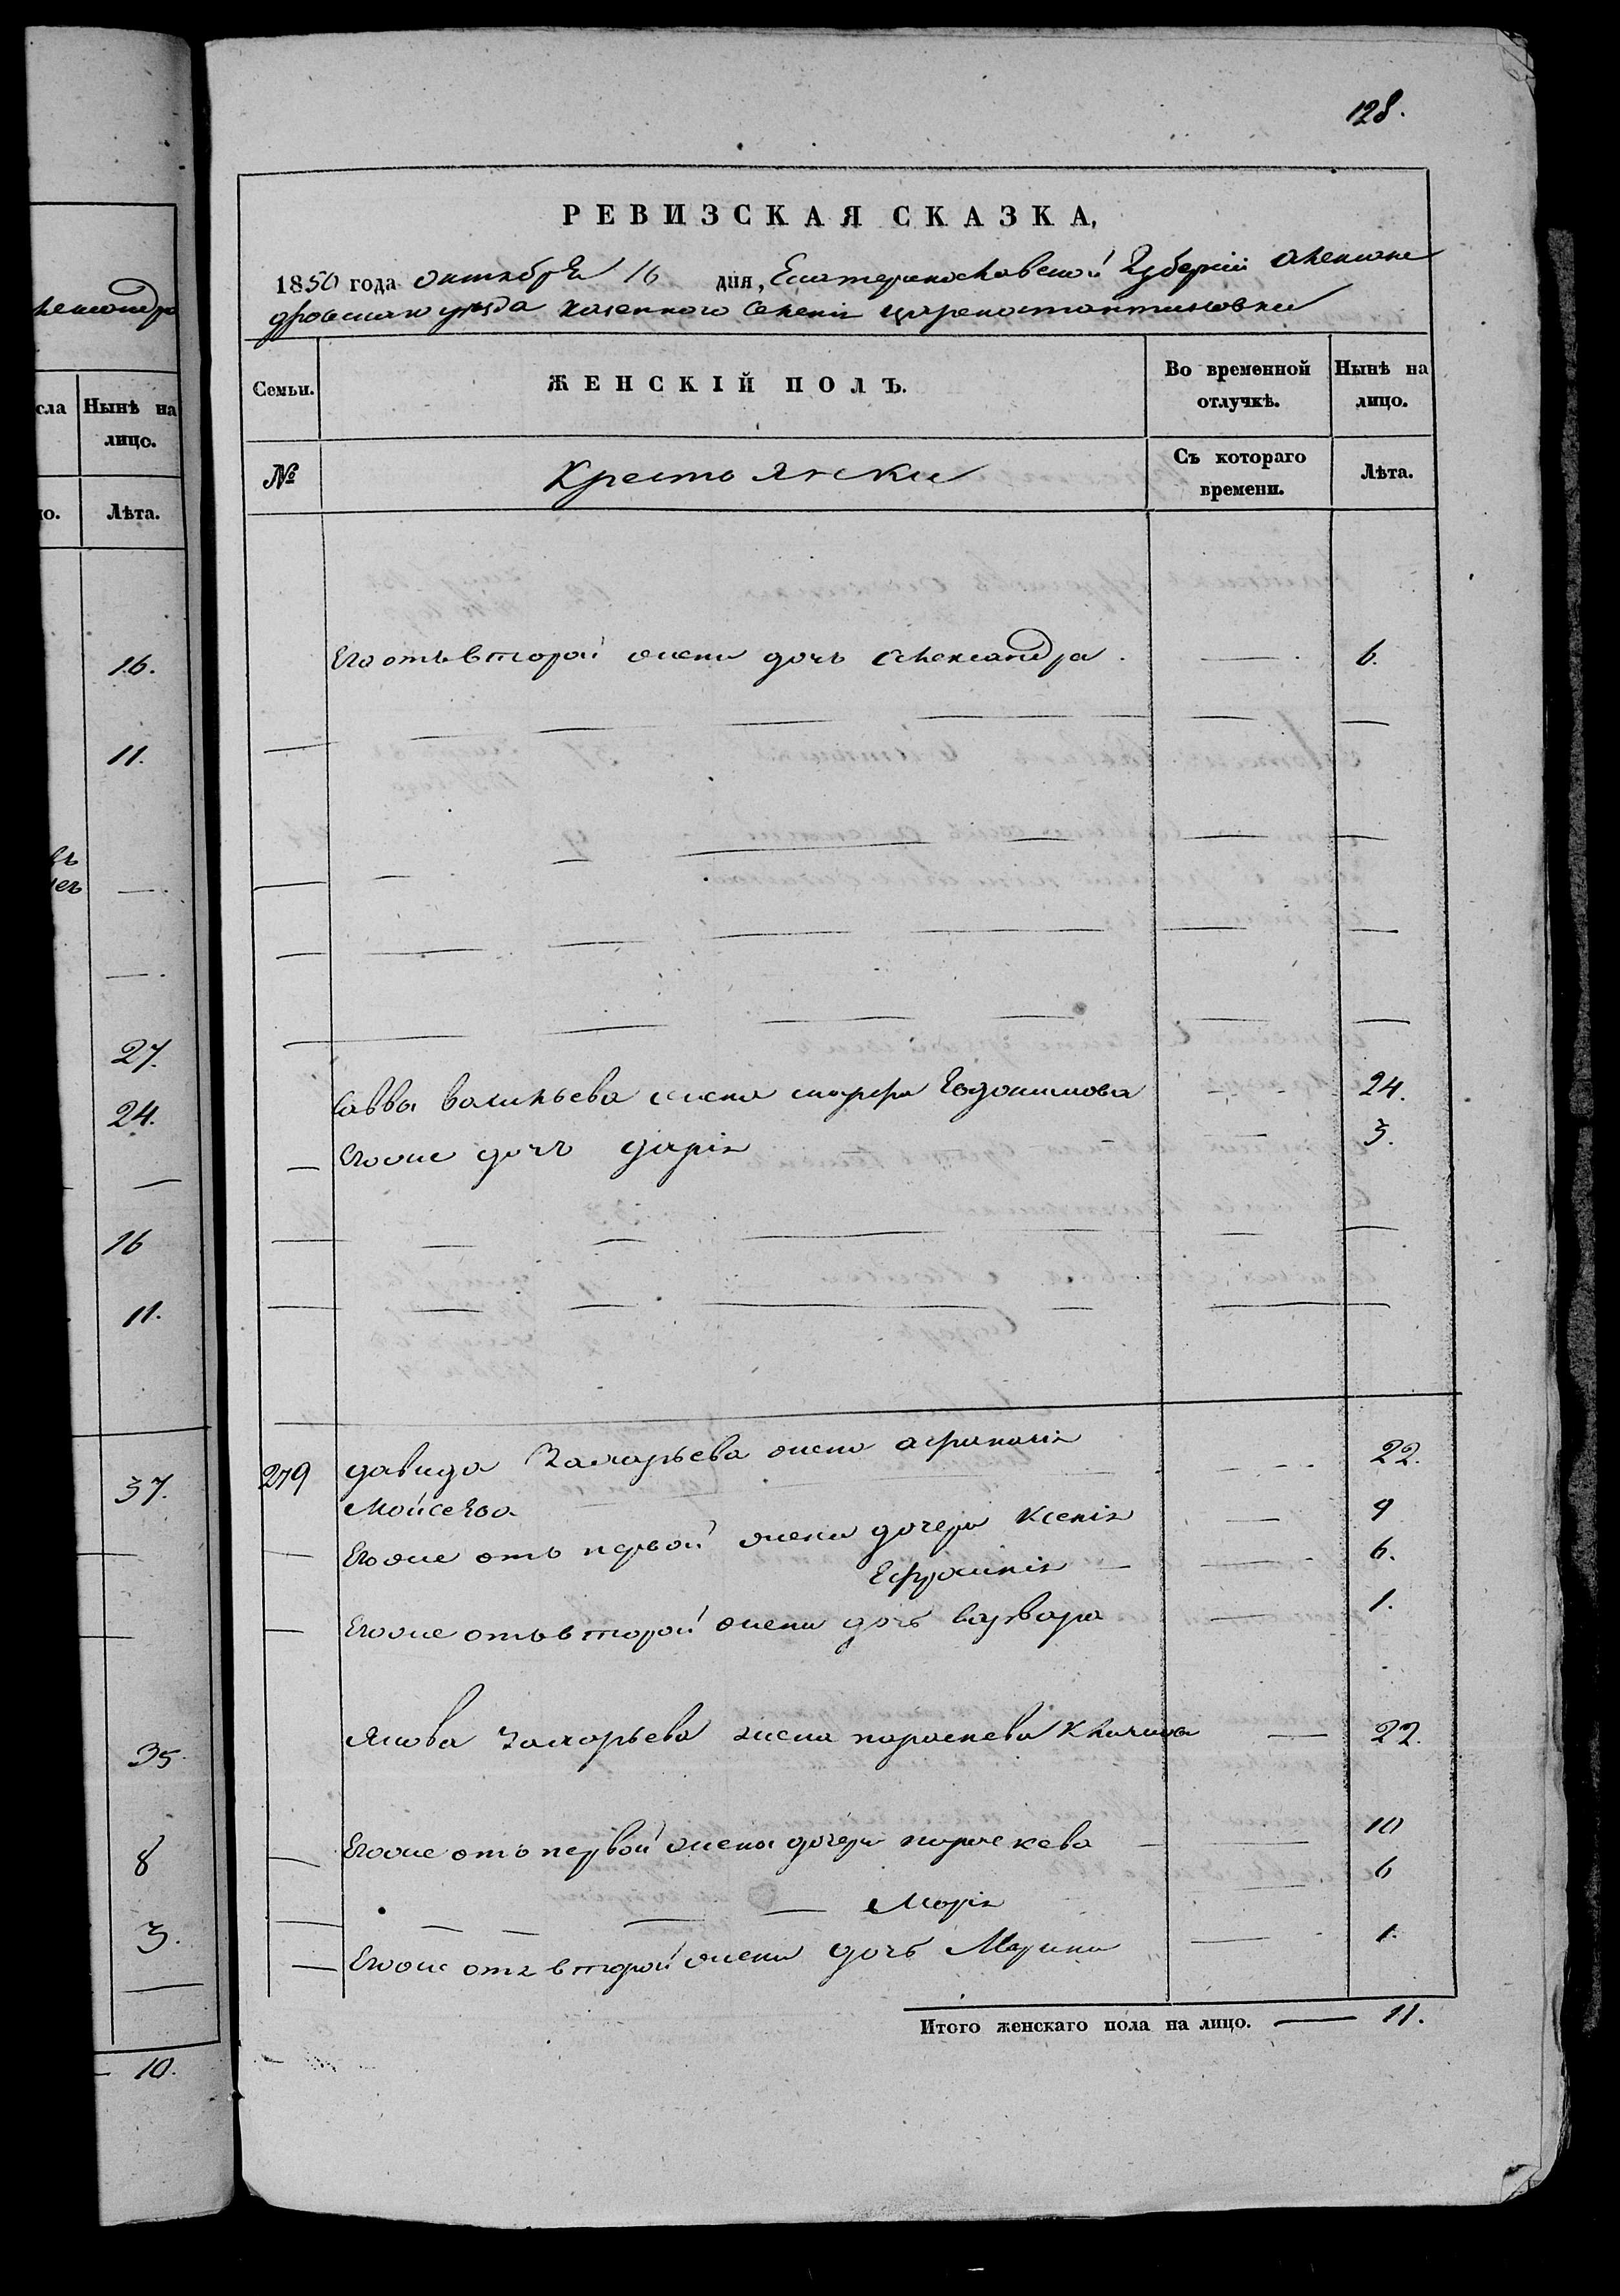 128.
РЕВИЗСКАЯ СКАЗКА,
1850 года октября 16 дня, Екатеринославской Губерніи Алексан
дровскаго уезда казенного Селенія Цареконстантиновки
Семьи.
ЖЕНСКІЙ ПОЛЪ.
Во временной отлучкѣ.
Нынѣ на лицо.
№
Крестьянки
Съ котораго времени.
Лѣта.
Его отъ второй жены дочь Александра. 6.
Саввы Васильева жена 24.
Егоже дочь Дарія 3.
279 Давида Захарьева жена 22.
Мойсеева
Егоже отъ первой жены дочери Ксенія 9
Ефросинія 6.
Егоже отъ второй жены дочь Варвара 1.
Якова Захарьева жена Параскева 22.
Егоже отъ первой жены дочери Параскева 10
Марія 6
Егоже отъ второй жены дочь Марина 1.
Итого женскаго пола на лицо. 11.
лександро
сла
Нынѣ на
лицо.
ло.
Лѣта.
16.
11.
27.
24.
16
11.
37.
35.
8
3.
10.